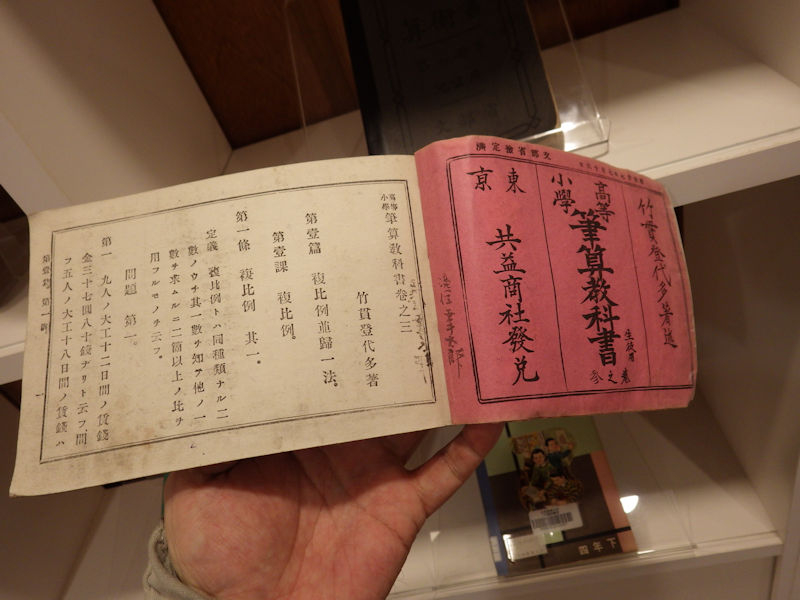 文部省檢定濟
竹貫登代多著述
高等
小學
筆算教科書
生徒用
巻之参
東京
共益商社發兌
高等
小學
筆算教科書卷之三
竹貫登代多著
第壹篇 複比例並歸一法。
第壹課 複比例。
第一條 複比例 其一。
定義 複比例トハ同種類ナル二
數ノウチ其一數ヲ知テ他ノ一
數ヲ求ムルニ二箇以上ノ比ヲ
用フルモノヲ云フ。
問題 第一。
第一 九人ノ大工十二日間ノ賃錢
金三十七圓八十錢ナリト云フ、問
フ五人ノ大工十八日間ノ賃錢ハ
第壹篇 第一課
一
算術書
文部省
四年下